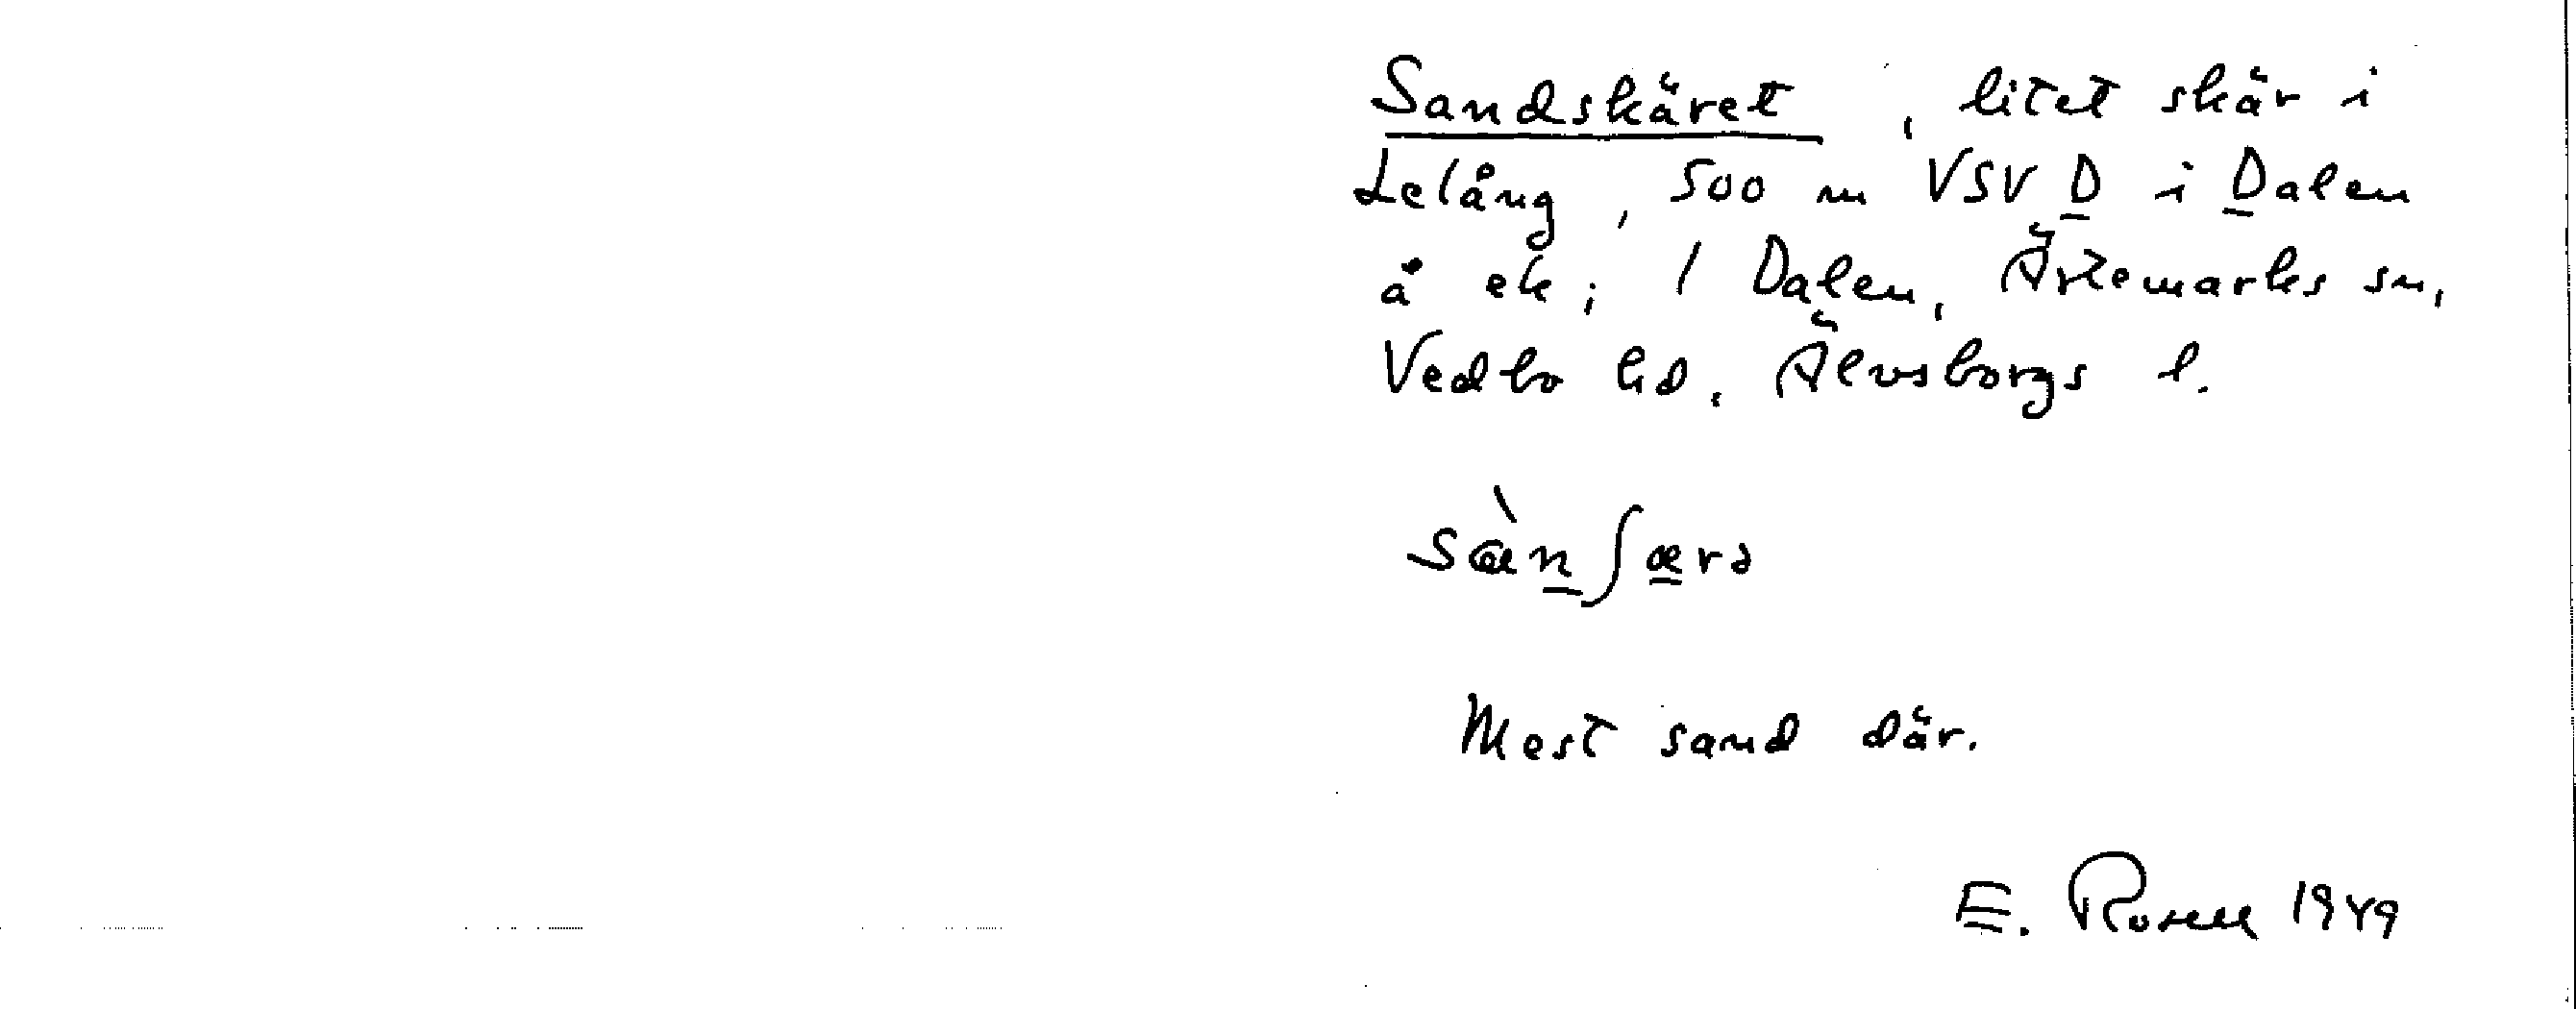 Sandskäret, litet skär i
Lelång, 500 m VSV D i Dalen
å ek; 1 Dalen, Ärtemarks sn,
Vedbo hd, Älvsborgs l.
sæ̀n̲ʃæ̲rə
Mest sand där.
E. Rosell 1949